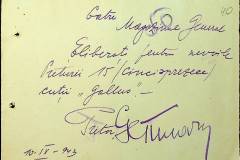 40
Către
Magazinul General
Eliberați pentru nevoile
Preturii 15 (cincisprezece)
cutii "Gallus".-
Pretor
10. IV - 943